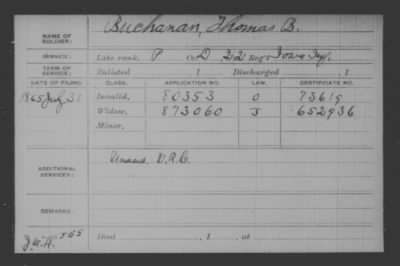 NAME OF SOLDIER: Buchanan, Thomas B.
SERVICE: Late rank, P Co. D, 22 Reg't Iowa Inf.
TERM OF SERVICE: Enlisted , 1 Discharged , 1
DATE OF FILING. CLASS. APPLICATION NO. LAW. CERTIFICATE NO.
1865 July 31 Invalid, 80353 O 73619
Widow, 873060 J 652936
Minor,
ADDITIONAL SERVICES: Unassd. V.R.C.
REMARKS:
Died , 1 , at